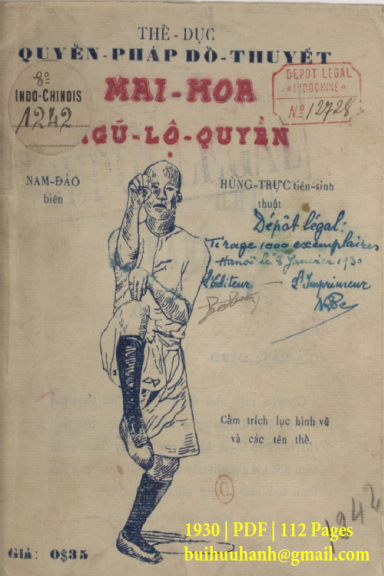 THỂ-DỤC
QUYỀN-PHÁP ĐỒ-THUYẾT
MAI-HOA
NGŨ-LỘ-QUYỀN
8º
INDO-CHINOIS
1242
DEPOT LEGAL
INDOCHINE
Nº 12728
NAM-ĐẢO
biên
HÙNG-TRỰC tiên-sinh
thuật
Dépôt légal:
Tirage 1000 exemplaires
Hanoï le 8 Janvier 1930
L'Editeur L'Imprimeur
Cấm trích lục hình vẽ
và các tên thế.
C
Giá: 0$35
1242
1930 | PDF | 112 Pages
buihuuhanh@gmail.com